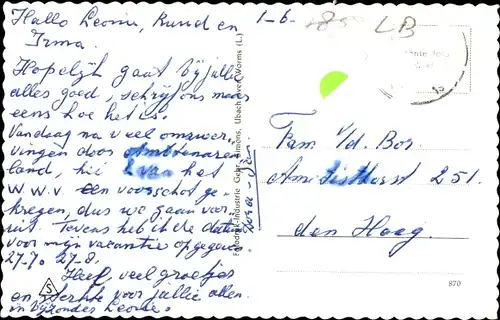 Hallo Leonie, Ruud en
Irma.
Hopelijk gaat bij jullie
alles goed, schrijf ons maar
eens hoe het is.
Vandaag na veel omzwer,
vingen door Ambtenaren,
land, hier van het
W.W.V. een voorschot ge-
kregen, dus we gaan voor,
uit. Tevens heb ik de data
voor mijn vacantie opgegeven
27.7. 27.8.
Heel veel groetjes
en sterkte voor jullie allen
in bijzonder Leonie.
S
Fotodruk-Industrie Gebr. Simons, Ubach over Worms (L.)
1-6-
LB
Fam. v/d. Bos.
251.
den Haag.
870